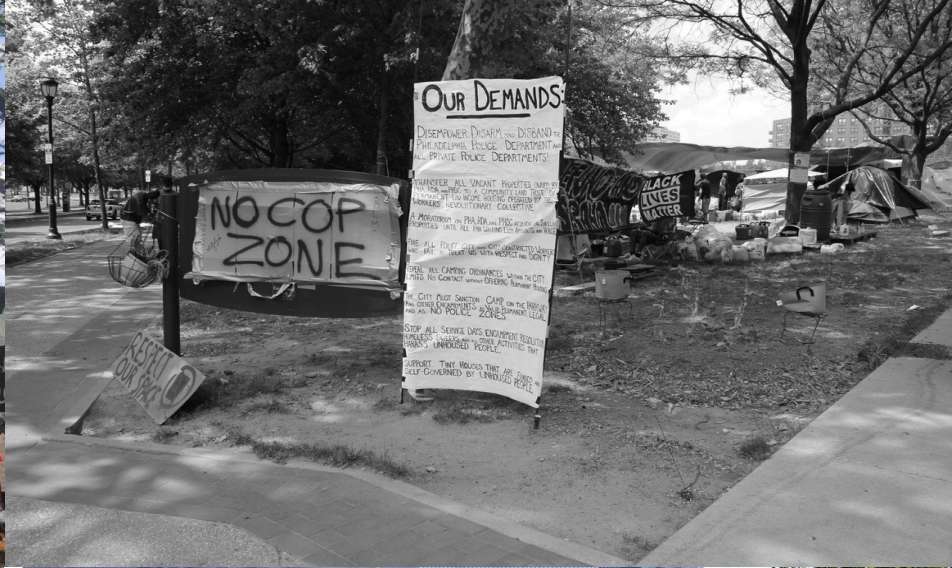 NO COP
ZONE
RESPECT
OUR SPACE
OUR DEMANDS:
DISEMPOWER, DISARM, AND DISBAND THE
PHILADELPHIA POLICE DEPARTMENT AND
ALL PRIVATE POLICE DEPARTMENTS!
TRANSFER ALL VACANT PROPERTIES OWNED BY
PHA, RDA TO A COMMUNITY LAND TRUST
PERMANENT LOW INCOME HOUSING OPERATED BY THE
WORKERS REVOLUTIONARY COLLECTIVE
A MORATORIUM ON PHA, RDA AND PHDC
PROPERTIES UNTIL ALL PHA WAITING LIST
FIRE ALL POLICE CITY AND CITY CONTRACTED WORKERS
WHO FAIL TO TREAT US WITH RESPECT AND DIGNITY
REPEAL ALL CAMPING ORDINANCES WITHIN THE CITY
LIMITS. NO CONTACT WITHOUT OFFERING PERMANENT HOUSING
THE CITY MUST SANCTION CAMP ON THE PARKWAY
AND OTHER ENCAMPMENTS AS VALID PERMANENT, LEGAL
AND AS NO POLICE ZONES
STOP ALL SERVICE DAYS, ENCAMPMENT RESOLUTION
HOMELESS SWEEPS AND ALL OTHER ACTIVITIES THAT
HARASS UNHOUSED PEOPLE.
SUPPORT TINY HOUSES THAT ARE FUNDED AND
SELF-GOVERNED BY UNHOUSED PEOPLE
BLACK
LIVES
MATTER